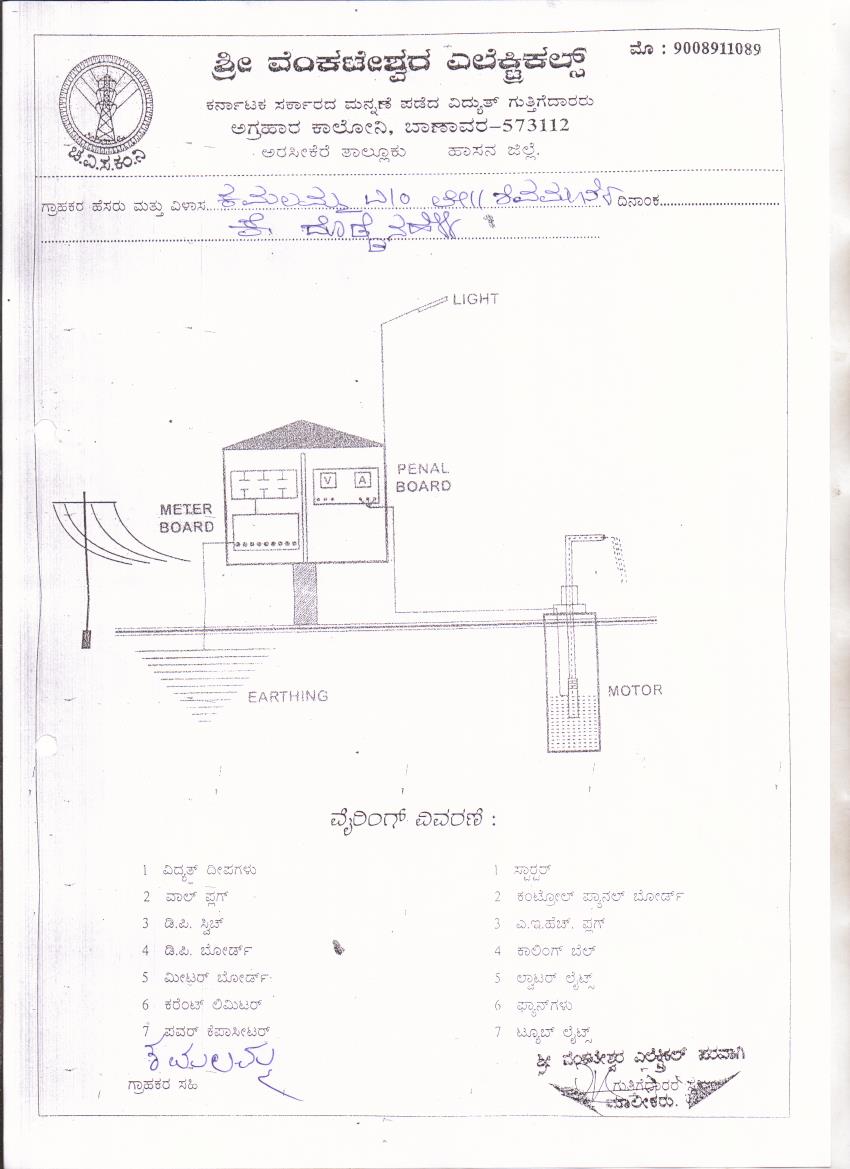 ಶ್ರೀ ವೆಂಕಟೇಶ್ವರ ಎಲೆಕ್ಟ್ರಿಕಲ್ಸ್
ಮೊ : 9008911089
ಕರ್ನಾಟಕ ಸರ್ಕಾರದ ಮನ್ನಣೆ ಪಡೆದ ವಿದ್ಯುತ್ ಗುತ್ತಿಗೆದಾರರು
ಅಗ್ರಹಾರ ಕಾಲೋನಿ, ಬಾಣಾವರ-573112
ಅರಸೀಕೆರೆ ತಾಲ್ಲೂಕು ಹಾಸನ ಜಿಲ್ಲೆ.
ಚಾ.ವಿ.ಸ.ಕಂ.ನಿ
ಗ್ರಾಹಕರ ಹೆಸರು ಮತ್ತು ವಿಳಾಸ ಕಮಲಮ್ಮ ದಿನಾಂಕ
LIGHT
PENAL
BOARD
V A
METER
BOARD
EARTHING
MOTOR
ವೈರಿಂಗ್ ವಿವರಣೆ :
1 ವಿದ್ಯುತ್ ದೀಪಗಳು
2 ವಾಲ್ ಪ್ಲಗ್
3 ಡಿ.ಪಿ. ಸ್ವಿಚ್
4 ಡಿ.ಪಿ. ಬೋರ್ಡ್
5 ಮೀಟರ್ ಬೋರ್ಡ್
6 ಕರೆಂಟ್ ಲಿಮಿಟರ್
7 ಪವರ್ ಕೆಪಾಸೀಟರ್
1 ಸ್ಟಾರ್ಟರ್
2 ಕಂಟ್ರೋಲ್ ಪ್ಯಾನಲ್ ಬೋರ್ಡ್
3 ಎ.ಇ.ಹೆಚ್. ಪ್ಲಗ್
4 ಕಾಲಿಂಗ್ ಬೆಲ್
5 ಲ್ವಾಟರ್ ಲೈಟ್ಸ್
6 ಫ್ಯಾನ್‌ಗಳು
7 ಟ್ಯೂಬ್ ಲೈಟ್ಸ್
ಕಮಲಮ್ಮ
ಗ್ರಾಹಕರ ಸಹಿ
ಶ್ರೀ ವೆಂಕಟೇಶ್ವರ ಎಲೆಕ್ಟ್ರಿಕಲ್ ಪರವಾಗಿ
ಗುತ್ತಿಗೆದಾರರ
ಮಾಲೀಕರು.